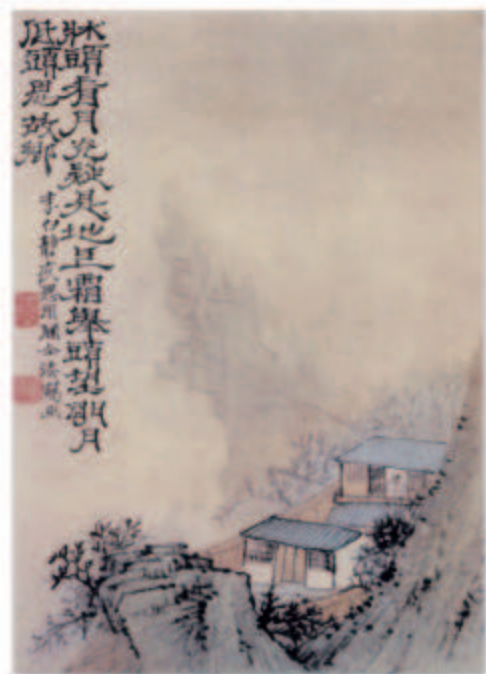 牀頭有月光疑是地上霜舉頭望明月
低頭思故鄉
李白靜夜思